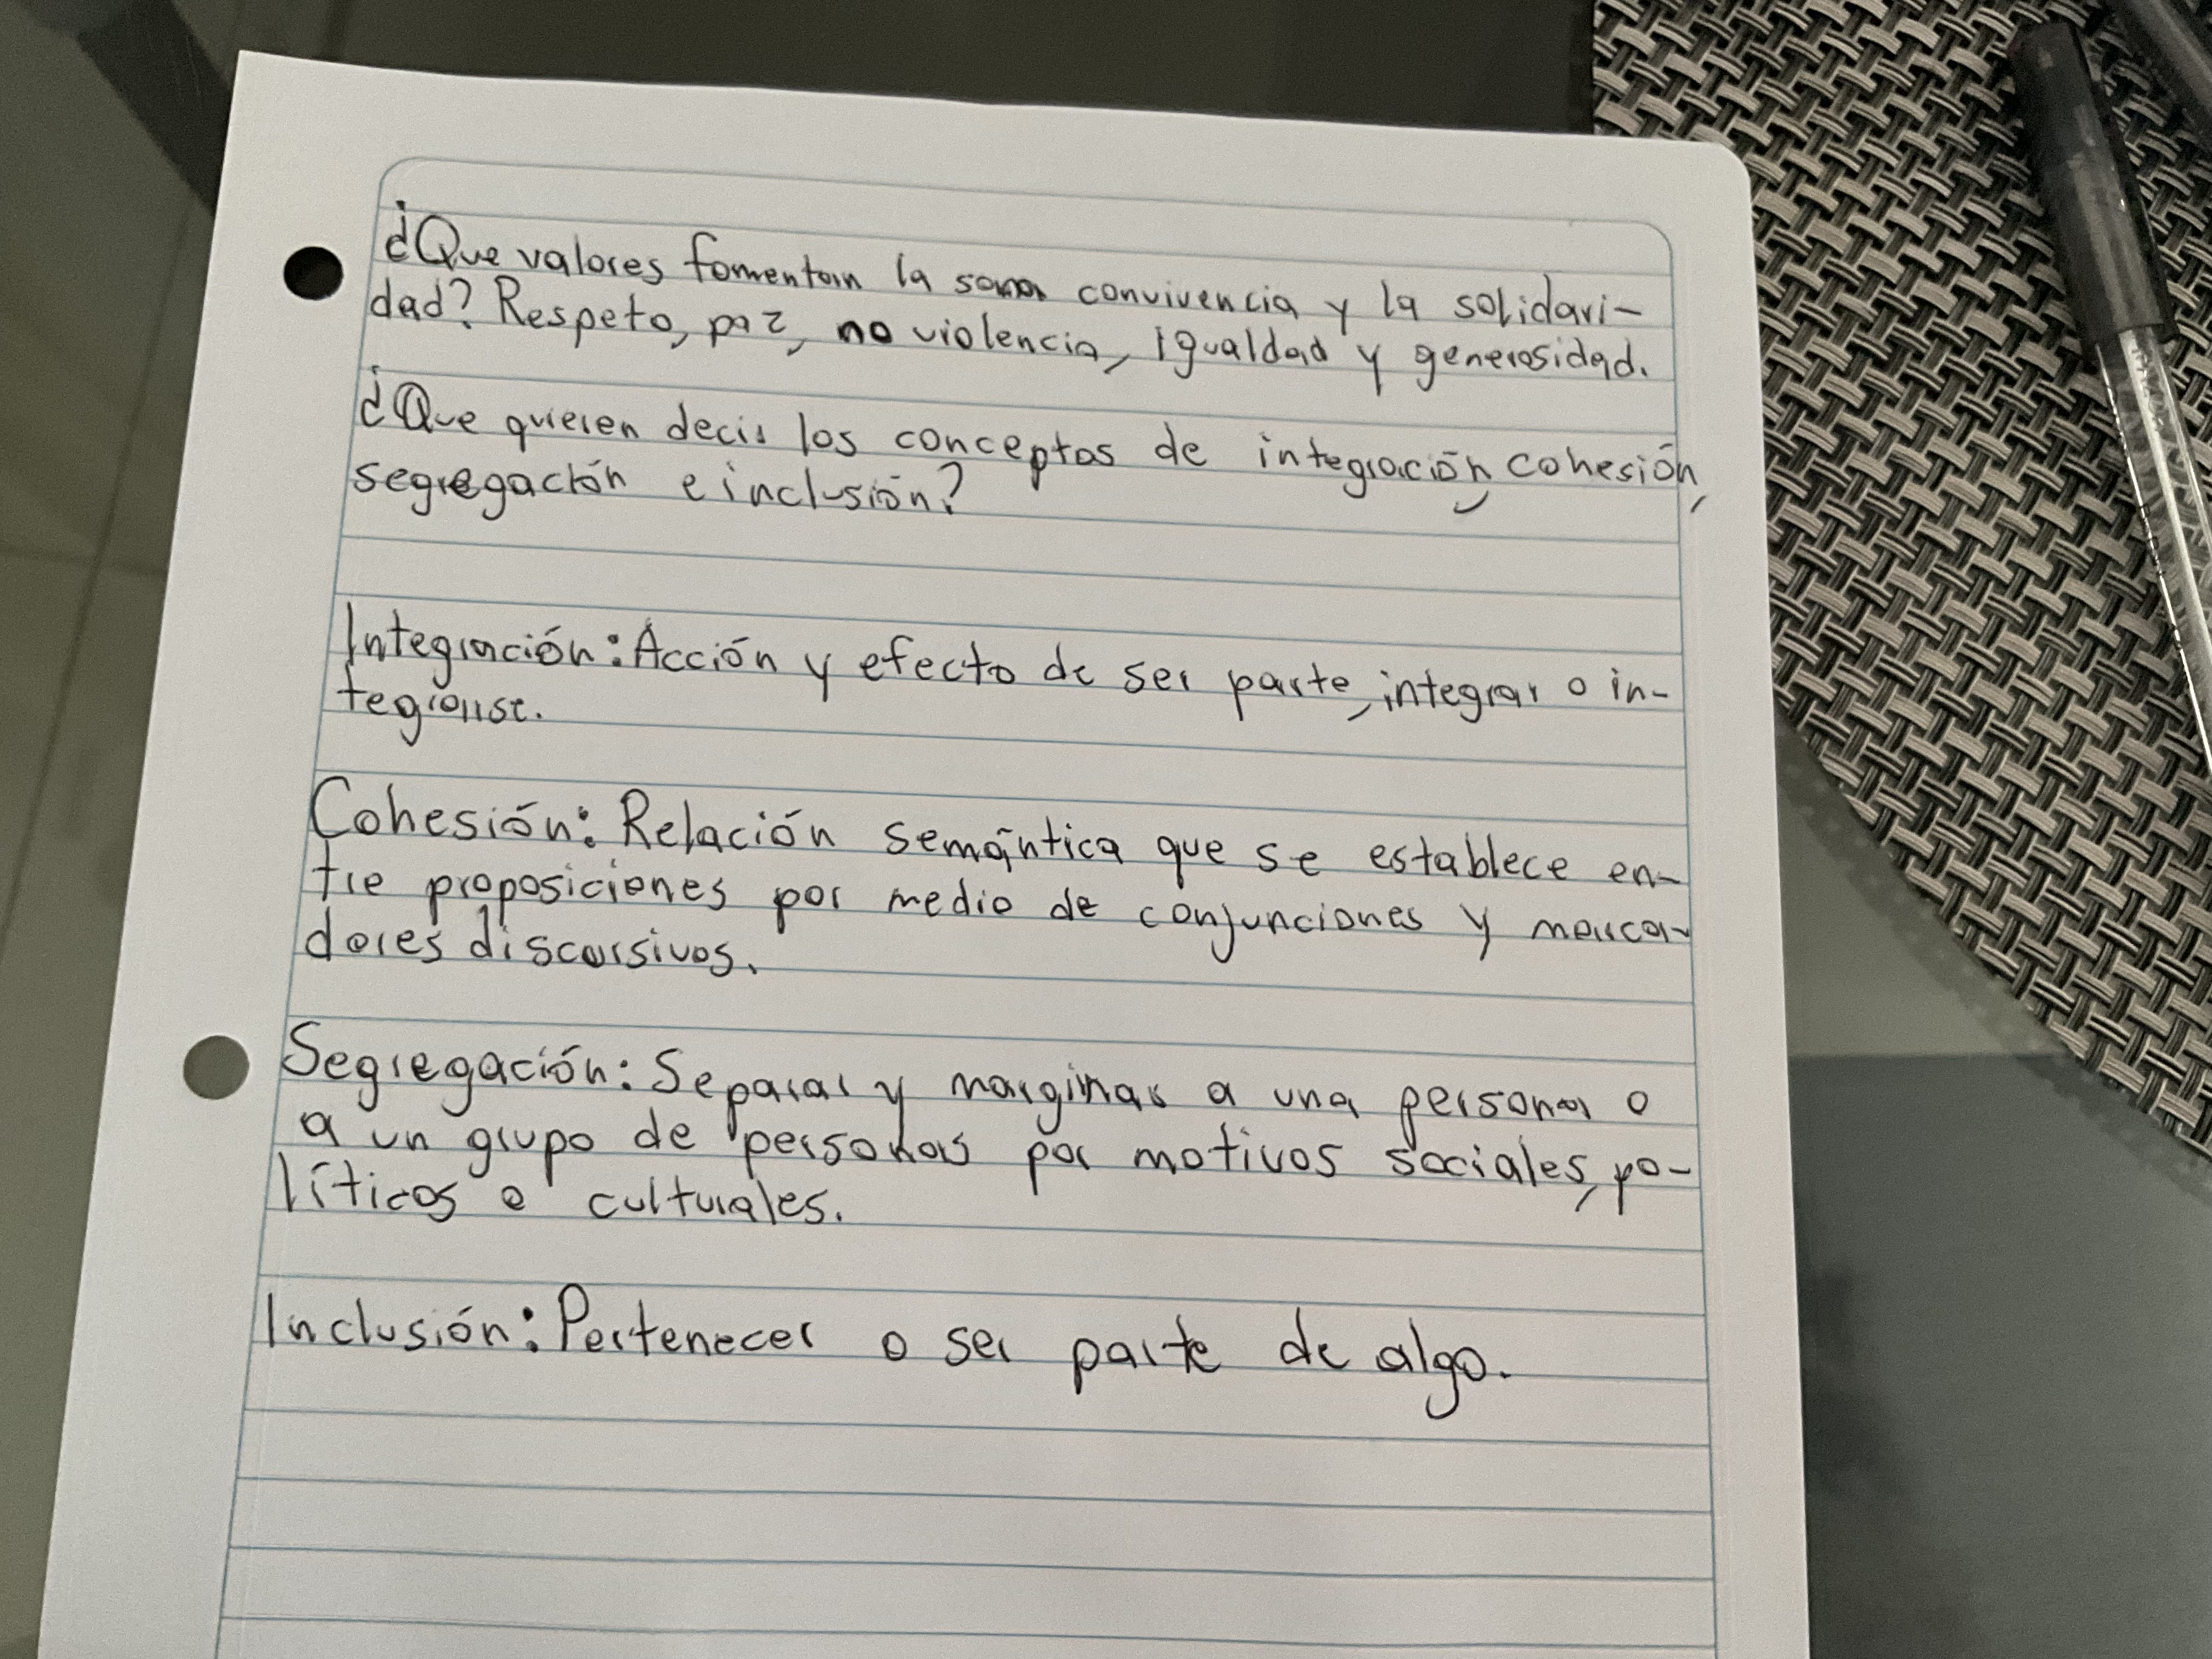 ¿Que valores fomentan la sana convivencia y la solidari-
dad? Respeto, paz, no violencia, igualdad y generosidad.
¿Que quieren decir los conceptos de integración, cohesión,
segregación e inclusión?
Integración: Acción y efecto de ser parte, integrar o in-
tegrarse.
Cohesión: Relación semántica que se establece en-
tre proposiciones por medio de conjunciones y marca-
dores discursivos.
Segregación: Separar y marginar a una persona o
a un grupo de personas por motivos sociales, po-
líticos o culturales.
Inclusión: Pertenecer o ser parte de algo.